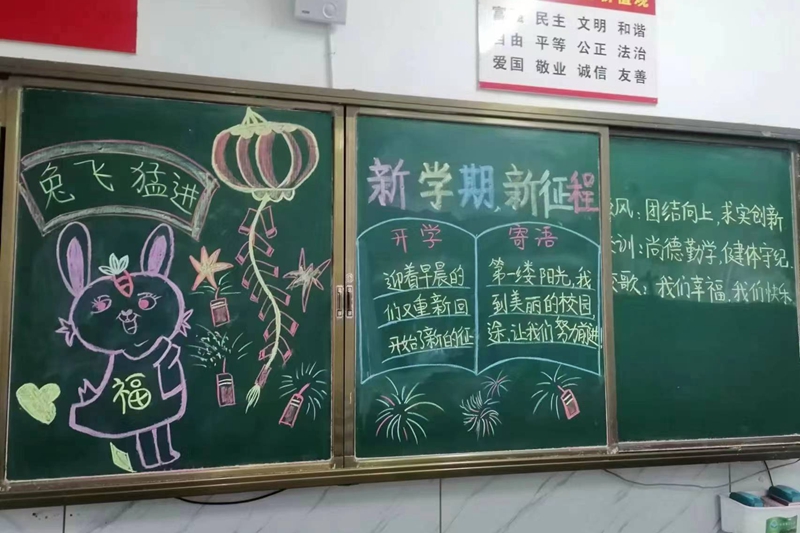 富强 民主 文明 和谐
自由 平等 公正 法治
爱国 敬业 诚信 友善
兔飞猛进
福
新学期,新征程
开学 寄语
迎着早晨的第一缕阳光,我
们又重新回到美丽的校园,
开始了新的征途,让我们努力前进
风:团结向上,求实创新
训:尚德勤学,健体守纪
歌:我们幸福,我们快乐